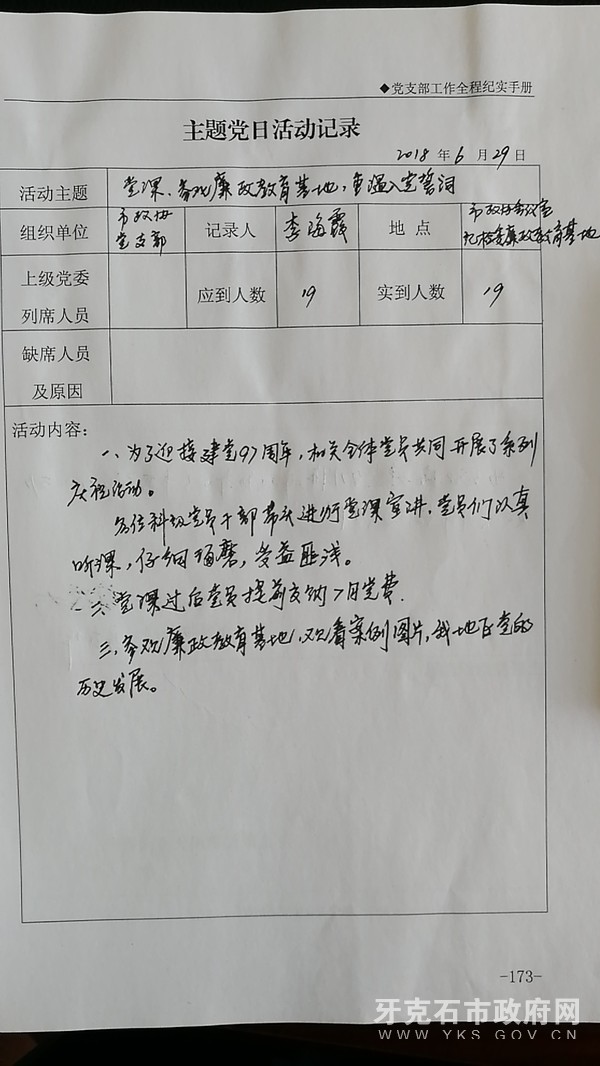 ◆党支部工作全程纪实手册
主题党日活动记录
2018 年 6 月 29 日
活动主题 党课、参观廉政教育基地,重温入党誓词
组织单位 市政协党支部 记录人 李海霞 地点 市政协会议室 纪检委廉政教育基地
上级党委列席人员 应到人数 19 实到人数 19
缺席人员及原因
活动内容:
一、为了迎接建党97周年,机关全体党员共同开展了系列
庆祝活动。
各位科级党员干部带头进行党课宣讲,党员们认真
听课,仔细琢磨,受益匪浅。
二、党课过后党员提前交纳7月党费.
三、参观廉政教育基地,观看案例图片,我地区党的
历史发展。
-173-
牙克石市政府网
WWW.YKS.GOV.CN